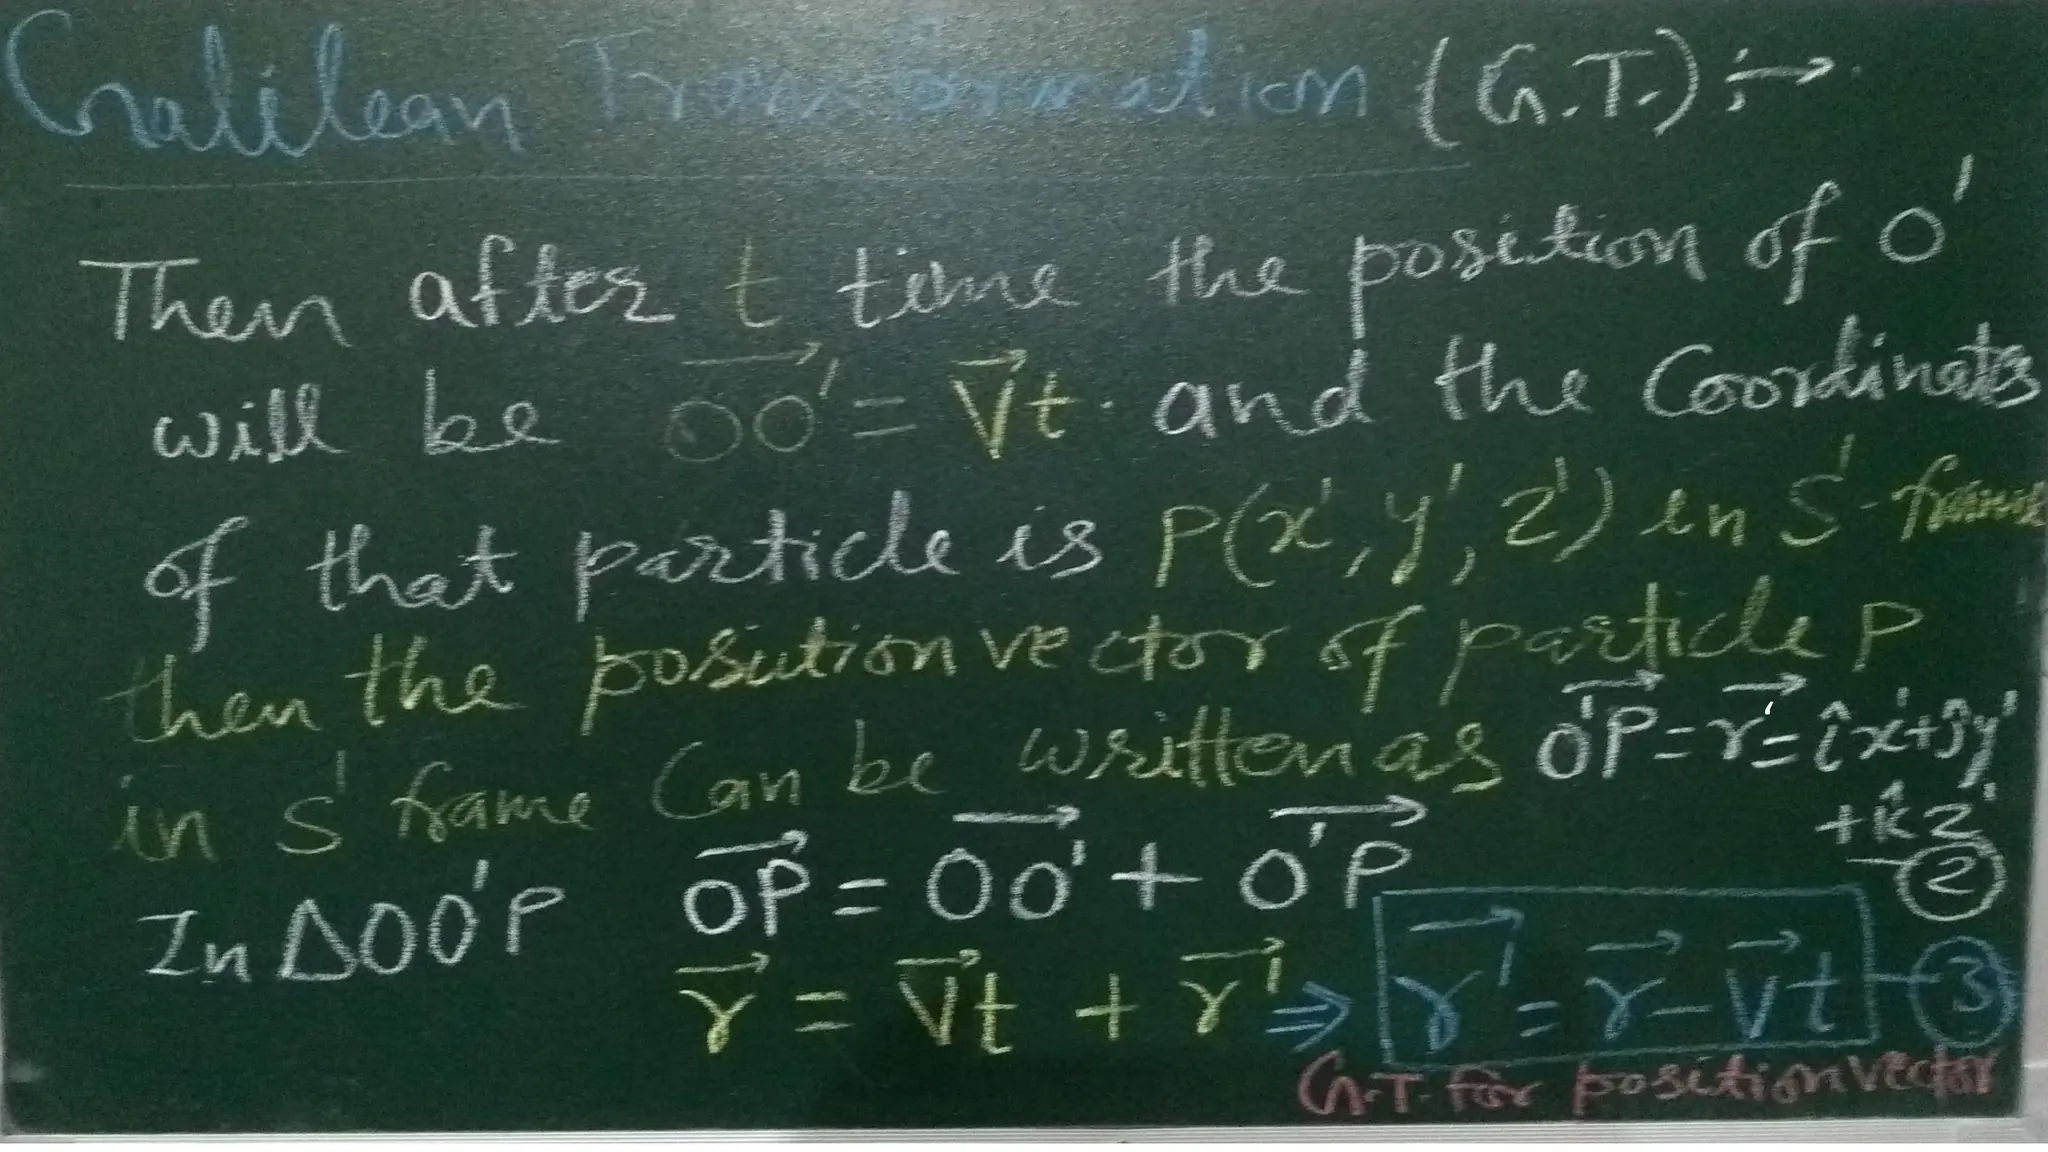 Galilean Transformation (G.T.) :→
Then after t time the position of O'
will be \overrightarrow{OO'} = \vec{V}t. and the Coordinates
of that particle is P(x', y', z') in S'-frame
then the position vector of particle P
in S' frame Can be written as \overrightarrow{O'P} = \vec{r'} = îx'+ĵy'
+k̂z' —②
In ΔOO'P \overrightarrow{OP} = \overrightarrow{OO'} + \overrightarrow{O'P}
\vec{r} = \vec{V}t + \vec{r'} ⇒ \vec{r'} = \vec{r} - \vec{V}t —③
G.T. for position vector